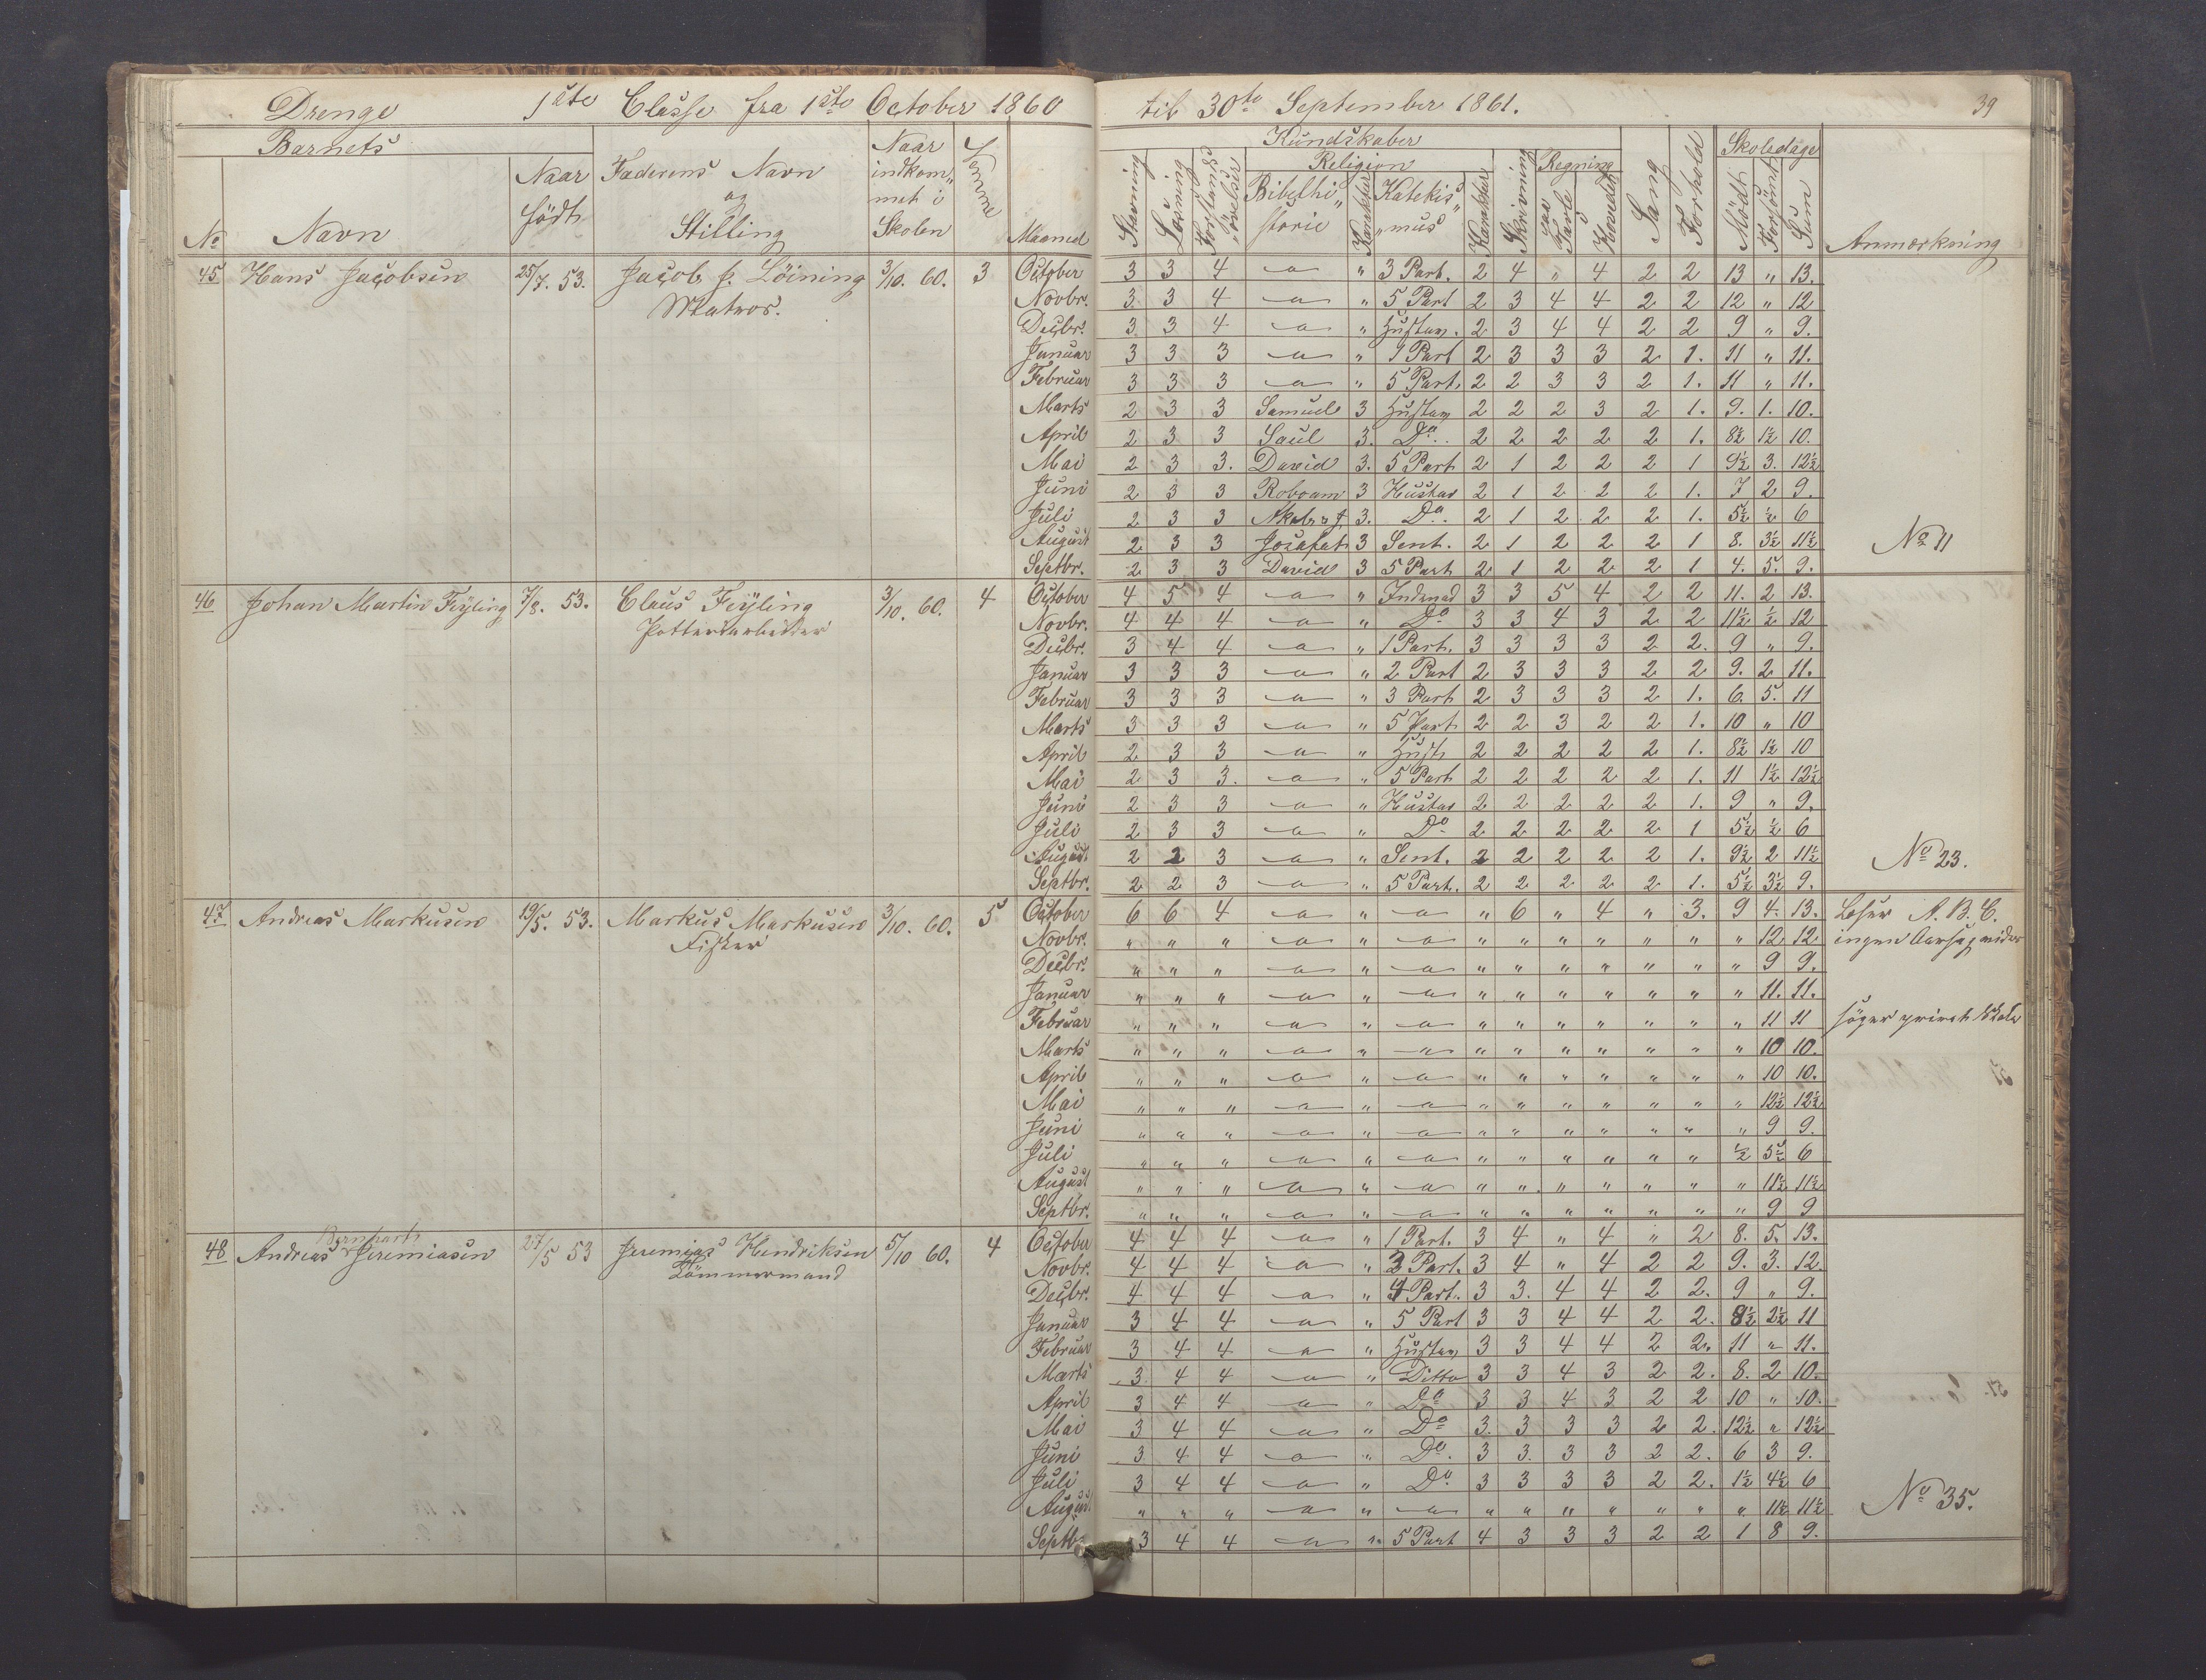 Drenge 1ste Classe fra 1ste October 1860 til 30te September 1861. 39
Barnets Kundskaber Skoledage
Religion Regning
No Navn Naar født Faderens Navn og Stilling Naar indkommet i Skolen Maaned Stavning Læsning Forstands øvelser Bibelhistorie Karakter Katekismus Karakter Skrivning paa Tavle Hovedet Sang Forhold Mødt Forsømt Sum Anmærkning
45 Hans Jacobsen 25/7. 53. Jacob J. Löining 3/10. 60. 3 October 3 3 4 — " 3 Part. 2 4 " 4 2 2 13 " 13.
Matros. Novbr. 3 3 4 — " 5 Part 2 3 4 4 2 2 12 " 12
Decbr. 3 3 4 — " Hustav. 2 3 4 4 2 2 9 " 9.
Januar 3 3 3 — " 1 Part 2 3 3 3 2 1. 11 " 11.
Februar 3 3 3 — " 5 Part. 2 2 3 3 2 1. 11 " 11.
Marts 2 3 3 Samuel 3 Hustav 2 2 2 3 2 1. 9. 1. 10.
April 2 3 3 Saul 3. Do. 2 2 2 2 2 1. 8½ 1½ 10.
Mai 2 3 3. David 3. 5 Part 2 1 2 2 2 1 9½ 3. 12½
Juni 2 3 3 Roboam 3 Hustav 2 1 2 2 2 1. 7 2 9.
Juli 2 3 3 3. Do. 2 1 2 2 2 1. 5½ ½ 6
August 2 3 3 Josafat 3 Sent. 2 1 2 2 2 1 8. 3½ 11½ No 11
Septbr. 2 3 3 David 3 5 Part 2 1 2 2 2 1 4. 5. 9.
46 Johan Martin Feyling 7/8. 53. Claus Feyling 3/10. 60. 4 October 4 5 4 — " Indenad 3 3 5 4 2 2 11. 2 13.
Potteriarbeider Novbr. 4 4 4 — " Do 3 3 4 3 2 2 11½ ½ 12
Decbr. 3 4 4 — " 1 Part. 3 3 3 3 2 2. 9 " 9.
Januar 3 3 3 — " 2 Part 2 3 3 3 2 2 9. 2 11.
Februar 3 3 3 — " 3 Part 2 3 3 3 2 1. 6. 5. 11
Marts 3 3 3 — " 5 Part 2 2 3 2 2 1. 10 " 10
April 2 3 3 — " Hust 2 2 2 2 2 1. 8½ 1½ 10
Mai 2 3 3. — " 5 Part 2 2 2 2 2 1. 11 1½ 12½
Juni 2 3 3 — " Hustav 2 2 2 2 2 1. 9 " 9.
Juli 2 3 3 — " Do 2 2 2 2 2 1 5½ ½ 6
August 2 2 3 — " Sent. 2 2 2 2 2 1. 9½ 2 11½ No 23.
Septbr. 2 2 3 — " 5 Part. 2 2 2 2 2 1. 5½ 3½ 9.
47 Andreas Markusen 19/5. 53. Markus Markusen 3/10. 60. 5 October 6 6 4 — " — " 6 " 4 " 3. 9 4. 13. A. B. C.
Fisker Novbr. " " " — " — " " " " " " " 12 12 ingen
Decbr. " " " — " — " " " " " " " 9 9.
Januar " " " — " — " " " " " " " 11. 11.
Februar " " " — " — " " " " " " " 11 11 søger privat Skole
Marts " " " — " — " " " " " " " 10 10.
April " " " — " — " " " " " " " 10 10.
Mai " " " — " — " " " " " " " 12½ 12½
Juni " " " — " — " " " " " " " 9 9.
Juli " " " — " — " " " " " " ½ 5½ 6
August " " " — " — " " " " " " " 11½ 11½
Septbr. " " " — " — " " " " " " " 9 9
Bernhart
48 Andreas Jeremiasen 27/5 53 Jeremias Hendriksen 5/10 60. 4 October 4 4 4 — " 1 Part. 3 4 " 4 " 2 8. 5. 13.
Tömmermand Novbr. 4 4 4 — " 3 Part. 3 4 " 4 2 2 9. 3. 12.
Decbr. 4 4 4 — " 4 Part. 3 3. 4 4 2 2. 9 " 9.
Januar 3 4 4 — " 5 Part 3 3 4 4 2 2. 8½ 2½ 11
Februar 3 4 4 — " Hustav 3 3 4 4 2 2. 11 " 11.
Marts 3 4 4 — " Ditto 3 3 4 3 2 2. 8. 2 10.
April 3 4 4 — " Do 3 3 4 3 2 2 10 " 10.
Mai 3 4 4 — " Do 3. 3 3 3 2 2. 12½ " 12½
Juni 3 4 4 — " Do. 3 3. 3 3 2 2. 6 3 9.
Juli 3 4 4 — " Do 3 3 3 3 2 2. 1½ 4½ 6
August " " " — " — " " " " " " " 11½ 11½ No 35.
Septbr 3 4 4 — " 5 Part 4 3 3 3 2 2 1 8 9.